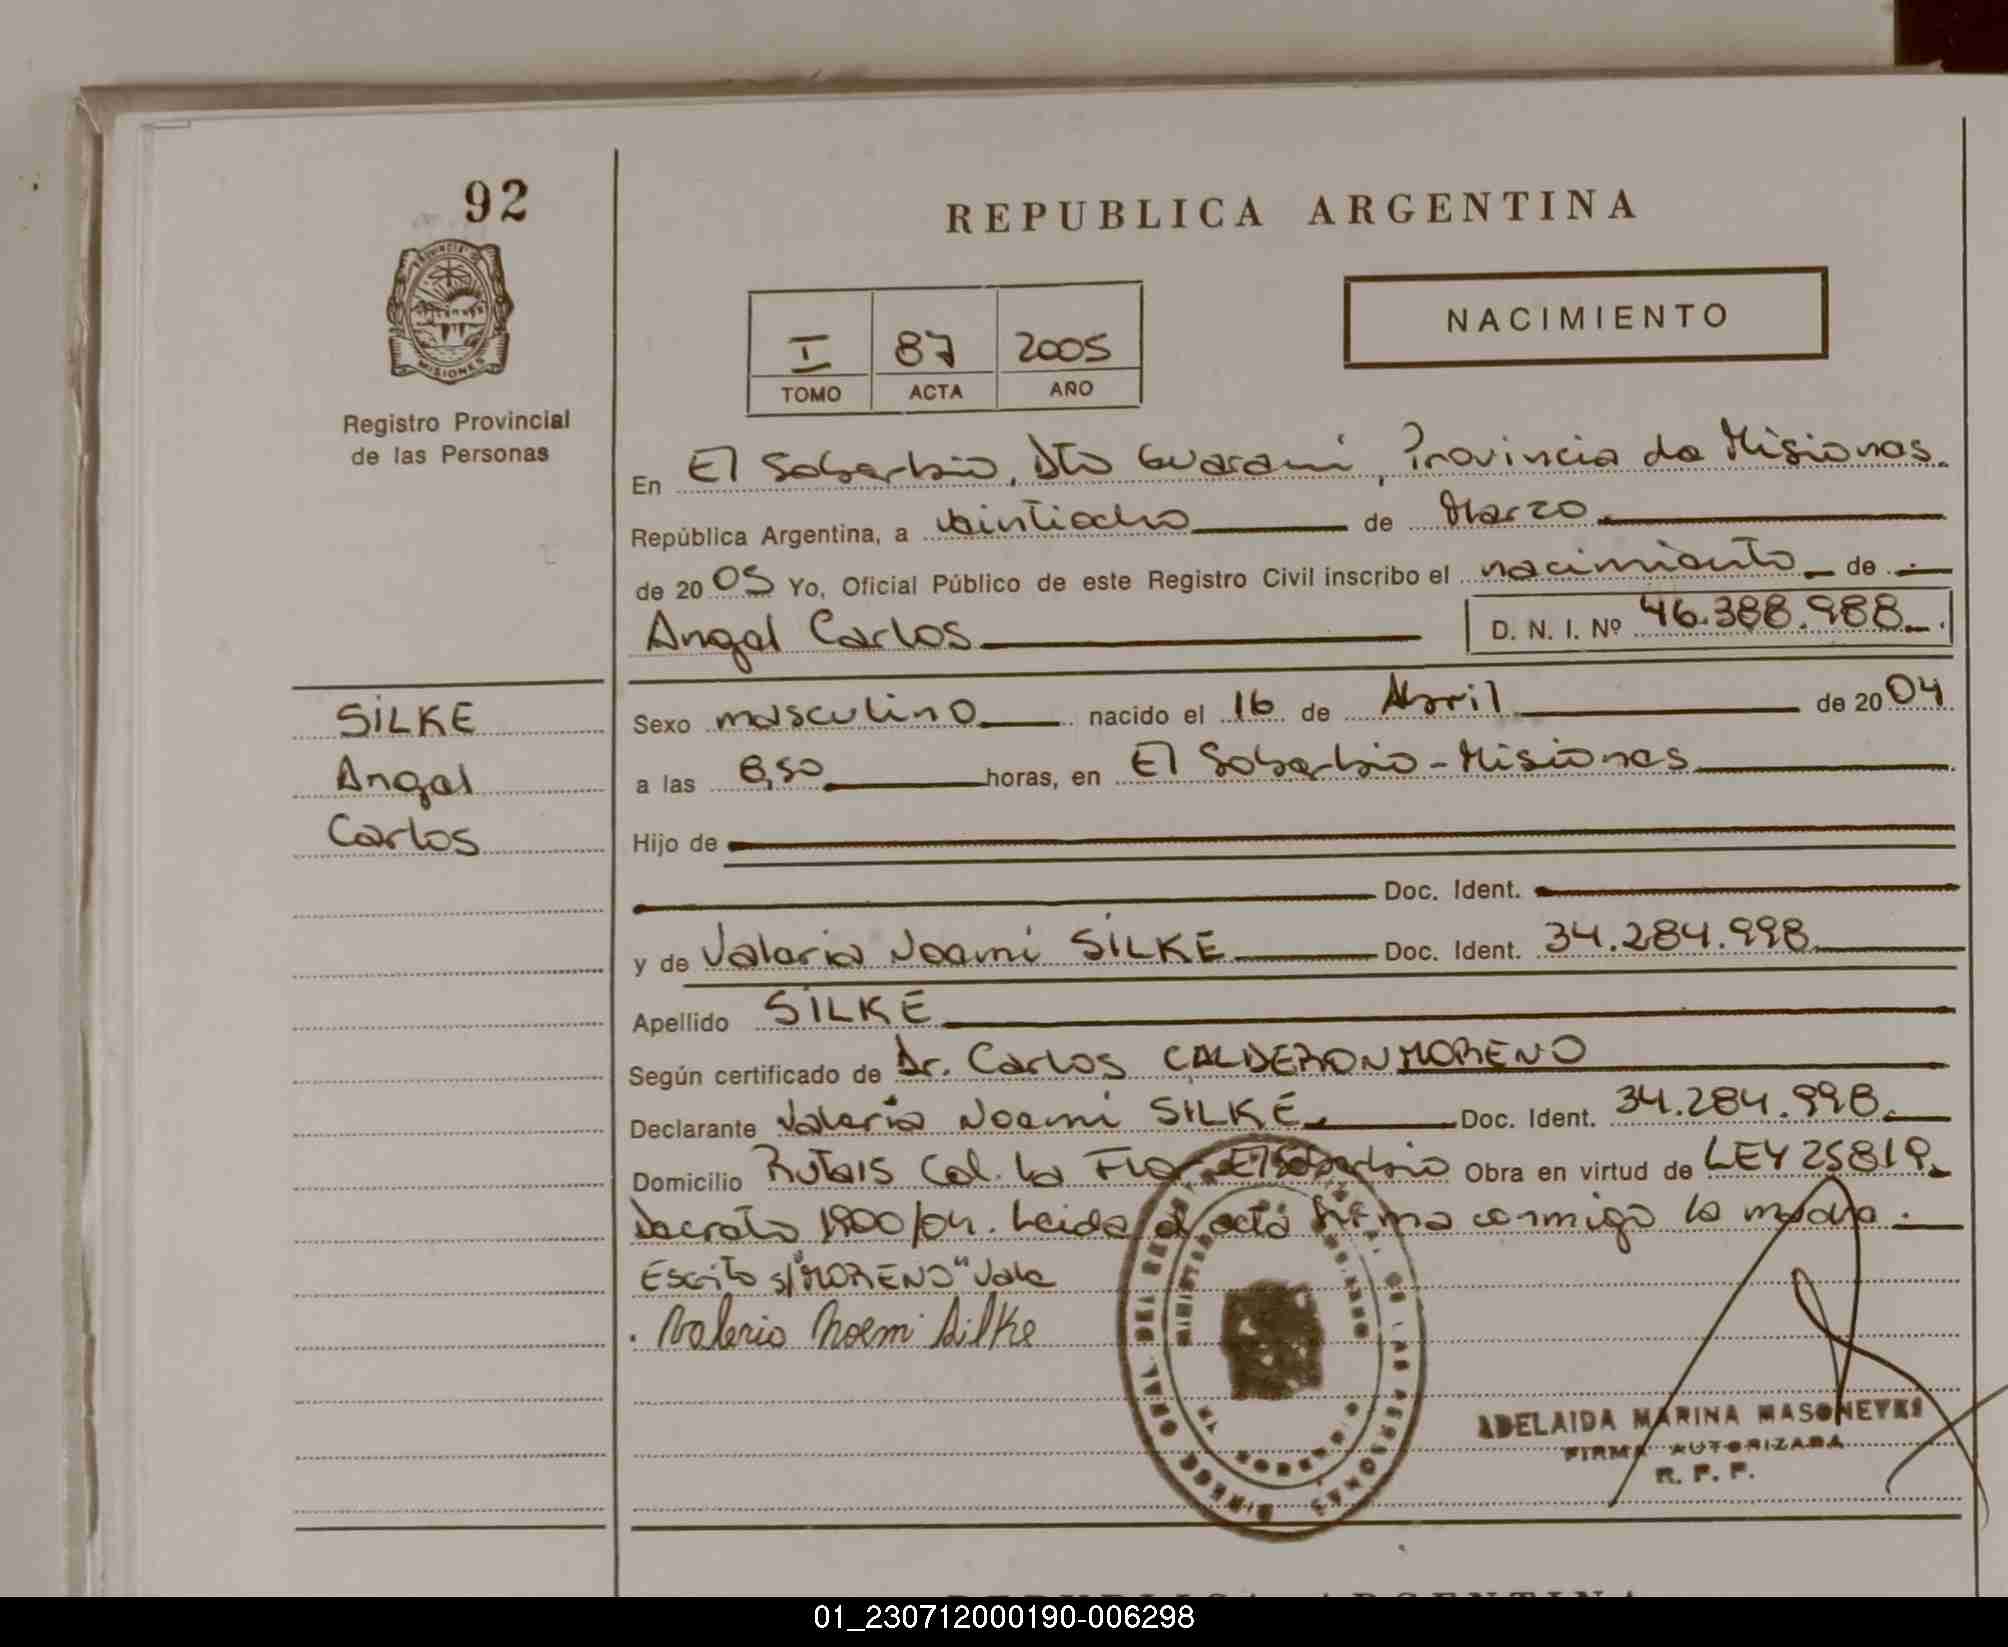 92
REPUBLICA ARGENTINA
NACIMIENTO
I 87 2005
TOMO ACTA AÑO
PROVINCIA DE
MISIONES
Registro Provincial
de las Personas
En El Soberbio, Dto Guarani, Provincia de Misiones.
República Argentina, a veintiocho de Marzo
de 2005 Yo, Oficial Público de este Registro Civil inscribo el nacimiento de
Angel Carlos D. N. I. Nº 46.388.988
SILKE
Angel
Carlos
Sexo masculino nacido el 16 de Abril de 2004
a las 8,50 horas, en El Soberbio - Misiones
Hijo de
Doc. Ident.
y de Valeria Noemi SILKE Doc. Ident. 34.284.998
Apellido SILKE
Según certificado de Dr. Carlos CALDERON MORENO
Declarante Valeria Noemi SILKE. Doc. Ident. 34.284.998
Domicilio Ruta 15 Col. La Flor El Soberbio Obra en virtud de LEY 25819.
Decreto 1900/04. Leida el acta firma conmigo la madre.
Escrito s/"MORENO" Vale
Valeria Noemi Silke
ADELAIDA MARINA
FIRMA AUTORIZADA
R. P. P.
REPUBLICA ARGENTINA
01_230712000190-006298